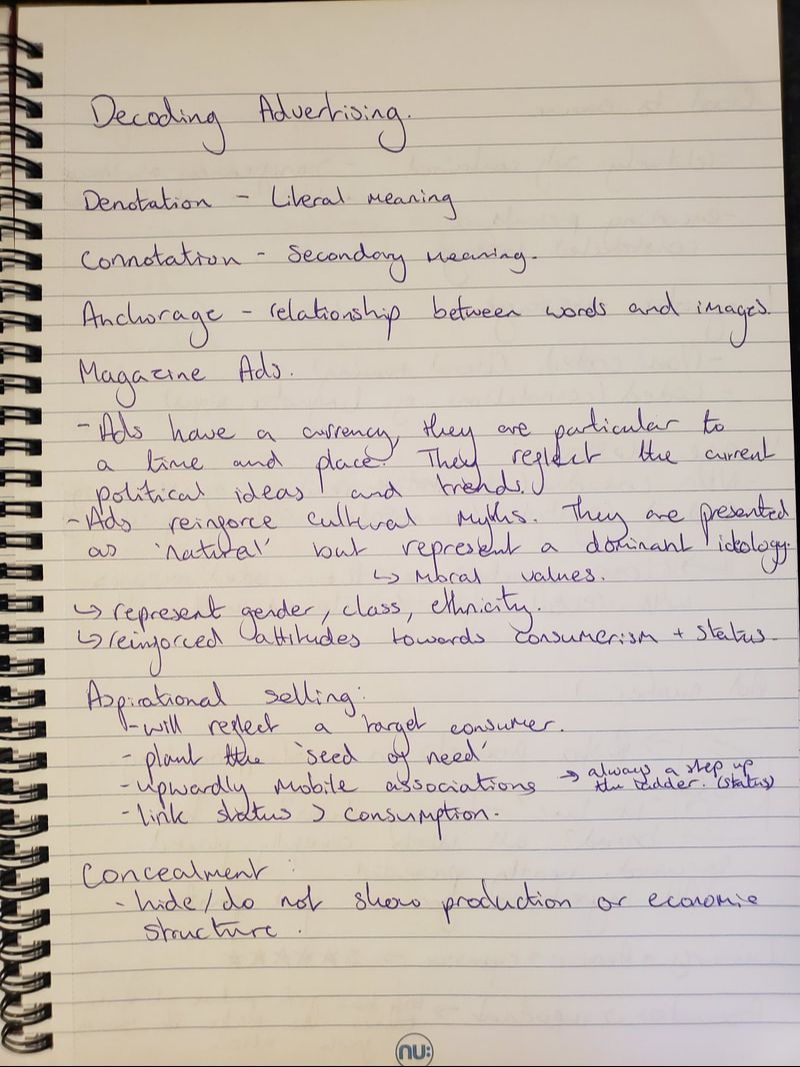 Decoding Advertising.
Denotation - Literal meaning
Connotation - Secondary meaning.
Anchorage - relationship between words and images.
Magazine Ads.
- Ads have a currency, they are particular to
a time and place. They reflect the current
political ideas and trends.
- Ads reinforce cultural myths. They are presented
as 'natural' but represent a dominant ideology.
↳ moral values.
↳ represent gender, class, ethnicity.
↳ reinforced attitudes towards consumerism + status.
Aspirational selling:
- will reflect a target consumer.
- plant the 'seed of need'
- upwardly mobile associations → always a step up
the ladder. (status)
- link status > consumption.
Concealment :
- hide/do not show production or economic
structure.
nu: